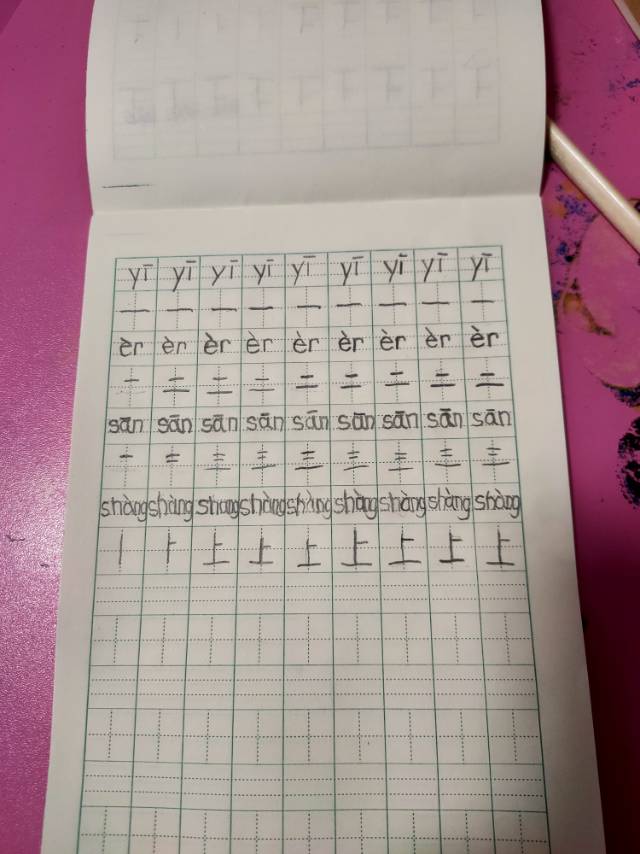 yī yī yī yī yī yī yī yī yī
一 一 一 一 一 一 一 一 一
èr èr èr èr èr èr èr èr èr
一 二 二 二 二 二 二 二 二
sān sān sān sān sān sān sān sān sān
一 二 三 三 三 三 三 三 三
shàng shàng shang shàng shàng shàng shàng shàng shàng
丨 ⺊ 上 上 上 上 上 上 上